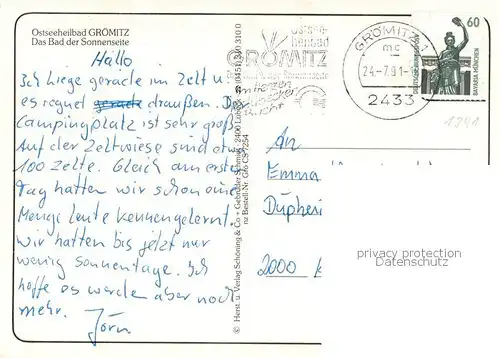 Ostseeheilbad GRÖMITZ
Das Bad der Sonnenseite
Hallo
Ich liege gerade im Zelt u.
es regnet gerade draußen. Der
Campingplatz ist sehr groß
Auf der Zeltwiese sind etwa
100 Zelte. Gleich am erste
Tag hatten wir schon eine
Menge Leute kennengelernt.
Wir hatten bis jetzt nur
wenig Sonnentage. Ich
hoffe es werden aber noch
mehr. Jörn
© Herst. u. Verlag Schöning & Co + Gebrüder Schmidt, 2400
Bestell-Nr. Grö
Ostsee-
heilbad
GRÖMITZ
GRÖMITZ 1
mc
24.-7.91-
2433
60
DEUTSCHE BUNDESPOST
BAVARIA MÜNCHEN
1341
An
Emma
2000
privacy protection
Datenschutz